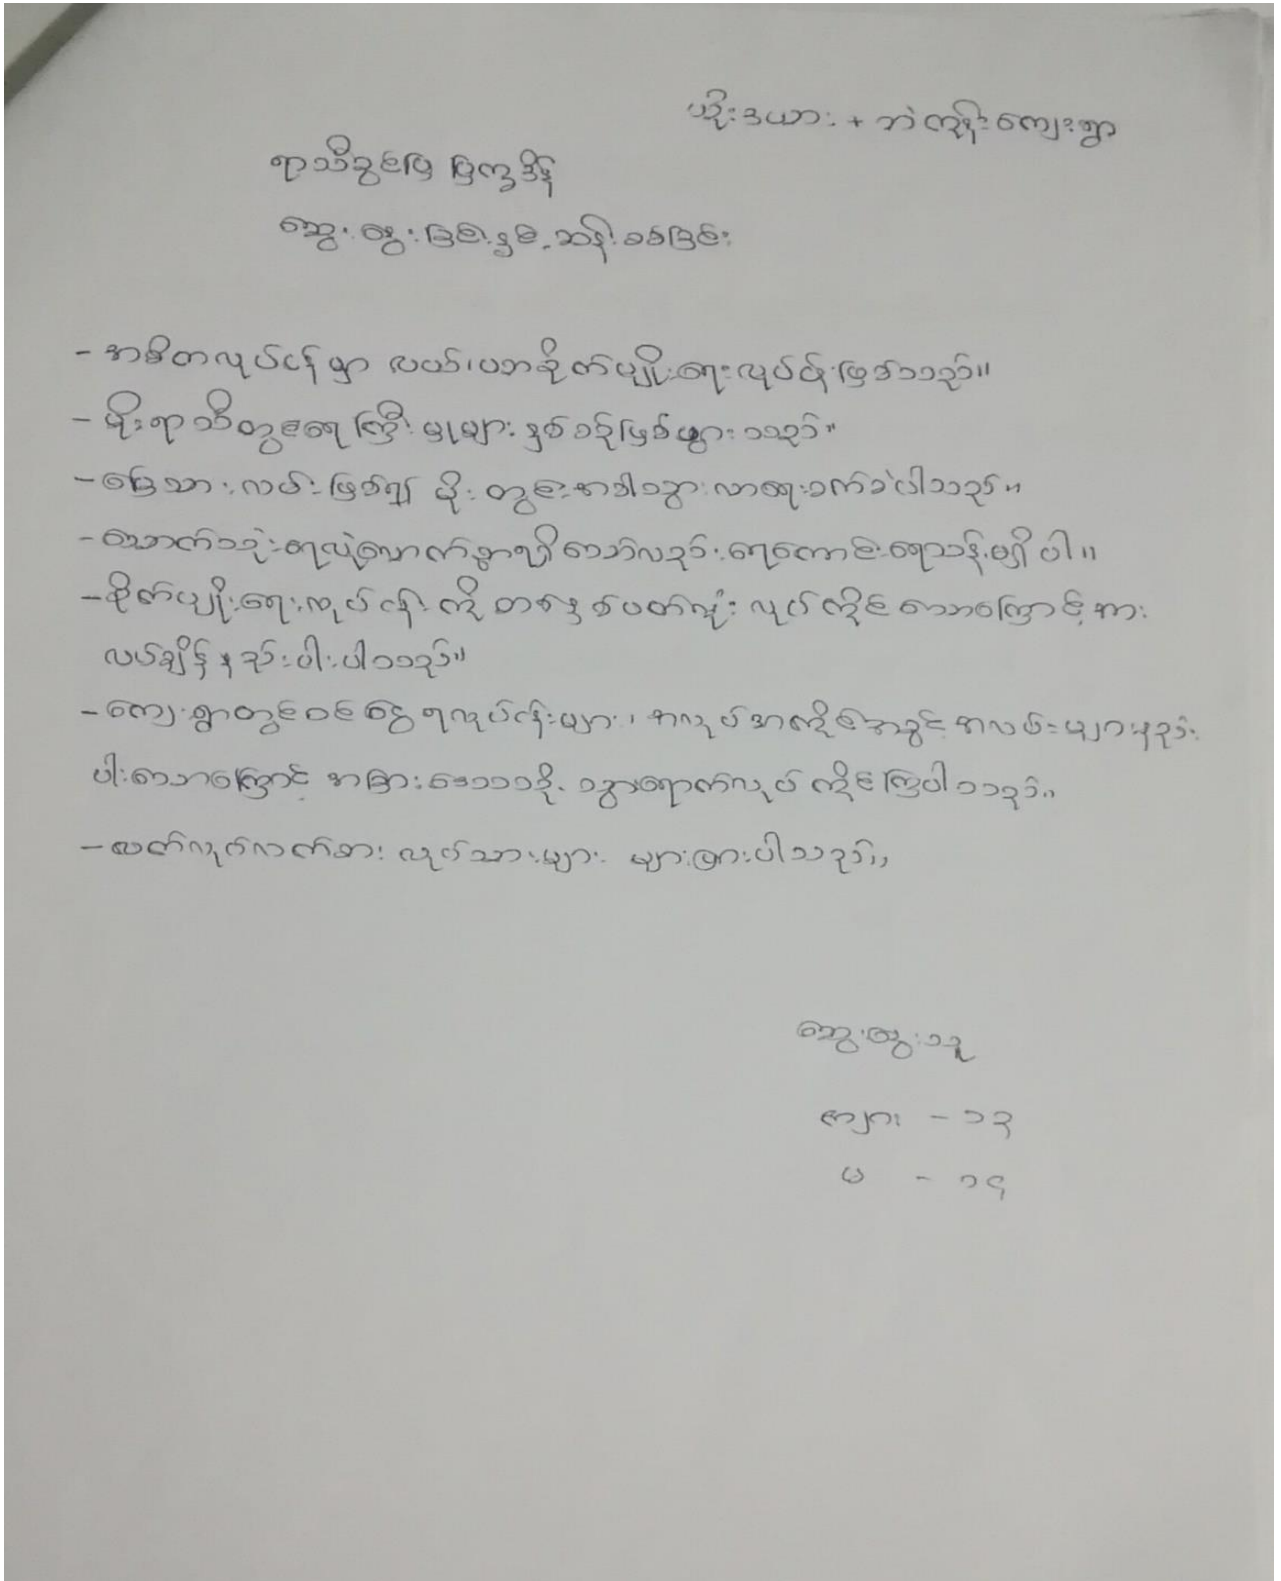 ယိုးဒယား + ဘဲကုန်းကျေးရွာ
ရာသီခွင်ပြ ပြက္ခဒိန်
ဆွေးနွေးခြင်းနှင့် ဆန်းစစ်ခြင်း
- အဓိကလုပ်ငန်းမှာ လယ်၊ယာစိုက်ပျိုးရေးလုပ်ငန်းဖြစ်သည်။
- မိုးရာသီတွင်ရေကြီးမှုများ နှစ်စဉ်ဖြစ်ပွားသည်။
- မြေသားလမ်းဖြစ်၍ မိုးတွင်းအခါသွားလာရေးခက်ခဲပါသည်။
- သောက်သုံးရေလုံလောက်စွာရရှိသော်လည်းရေကောင်းရေသန့်မရှိပါ။
- စိုက်ပျိုးရေးလုပ်ငန်းကို တစ်နှစ်ပတ်လုံး လုပ်ကိုင်သောကြောင့်အား
လပ်ချိန်နည်းပါးပါသည်။
- ကျေးရွာတွင်ဝင်ငွေရလုပ်ငန်းများ၊ အလုပ်အကိုင်အခွင့်အလမ်းများနည်း
ပါးသောကြောင့် အခြားဒေသသို့ သွားရောက်လုပ်ကိုင်ကြပါသည်။
- လက်လုပ်လက်စား လုပ်သားများ များပြားပါသည်။
ဆွေးနွေးသူ
ကျား - ၁၃
မ - ၁၄